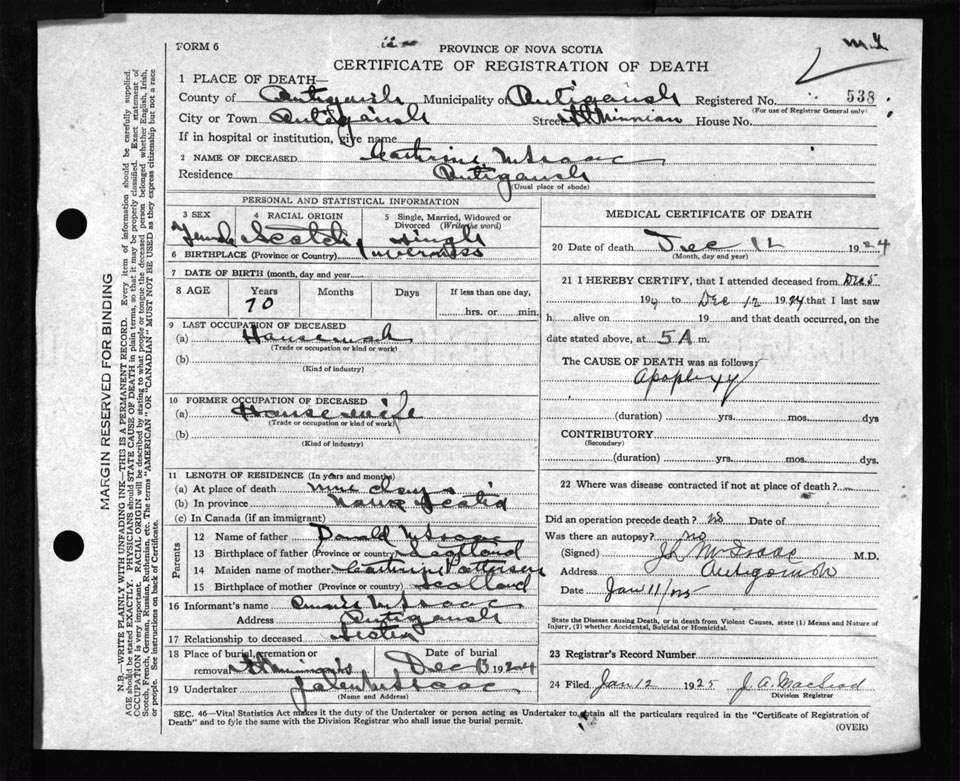 FORM 6
PROVINCE OF NOVA SCOTIA
CERTIFICATE OF REGISTRATION OF DEATH
1 PLACE OF DEATH—
County of Antigonish Municipality of Antigonish Registered No. 538
(For use of Registrar General only)
City or Town Antigonish Street St Ninian House No.
If in hospital or institution, give name
2 NAME OF DECEASED Catherine McIsaac
Residence Antigonish
(Usual place of abode)
PERSONAL AND STATISTICAL INFORMATION
3 SEX 4 RACIAL ORIGIN 5 Single, Married, Widowed or Divorced (Write the word)
Female Scotch Single
6 BIRTHPLACE (Province or Country) Inverness
7 DATE OF BIRTH (month, day and year)
8 AGE Years Months Days If less than one day,
70 hrs. or min.
9 LAST OCCUPATION OF DECEASED
(a) Housework
(Trade or occupation or kind or work)
(b)
(Kind of industry)
10 FORMER OCCUPATION OF DECEASED
(a) Housewife
(Trade or occupation or kind of work)
(b)
(Kind of industry)
11 LENGTH OF RESIDENCE (In years and months)
(a) At place of death nine days
(b) In province Nova Scotia
(c) In Canada (if an immigrant)
Parents
12 Name of father Donald McIsaac
13 Birthplace of father (Province or country) Scotland
14 Maiden name of mother Catherine Patterson
15 Birthplace of mother (Province or country) Scotland
16 Informant's name McIsaac
Address Antigonish
17 Relationship to deceased Sister
18 Place of burial, cremation or removal Date of burial
Dec 13 1924
19 Undertaker McIsaac
(Name and Address)
MEDICAL CERTIFICATE OF DEATH
20 Date of death Dec 12 1924
(Month, day and year)
21 I HEREBY CERTIFY, that I attended deceased from Dec 5
192 to Dec 12 1924 that I last saw
h alive on 19 and that death occurred, on
date stated above, at 5 A m.
The CAUSE OF DEATH was as follows:
Apoplexy
(duration) yrs. mos. dys
CONTRIBUTORY
(Secondary)
(duration) yrs. mos. dys.
22 Where was disease contracted if not at place of death?
Did an operation precede death? no Date of
Was there an autopsy? no
(Signed) McIsaac M.D.
Address Antigonish
Date Jan 11/25
State the Disease causing Death, or in death from Violent Causes, state (1) Means and Nature of
Injury, (2) whether Accidental, Suicidal or Homicidal.
23 Registrar's Record Number
24 Filed Jan 12 1925 J. A. MacLeod
Division Registrar
SEC. 46—Vital Statistics Act makes it the duty of the Undertaker or person acting as Undertaker to obtain all the particulars required in the "Certificate of Registration of
Death" and to file the same with the Division Registrar who shall issue the burial permit.
(OVER)
MARGIN RESERVED FOR BINDING
N.B.—WRITE PLAINLY WITH UNFADING INK—THIS IS A PERMANENT RECORD. Every item of information should be carefully supplied.
AGE should be stated EXACTLY. PHYSICIANS should STATE CAUSE OF DEATH in plain terms, so that it may be properly classified. Exact statement of
OCCUPATION is very important. RACIAL ORIGIN will be described by stating to what people or tongue the deceased person belonged whether English, Irish,
Scotch, French, German, Russian, Ruthenian, etc. The terms "AMERICAN" OR "CANADIAN" MUST NOT BE USED as they express citizenship but not a race
or people. See instructions on back of Certificate.